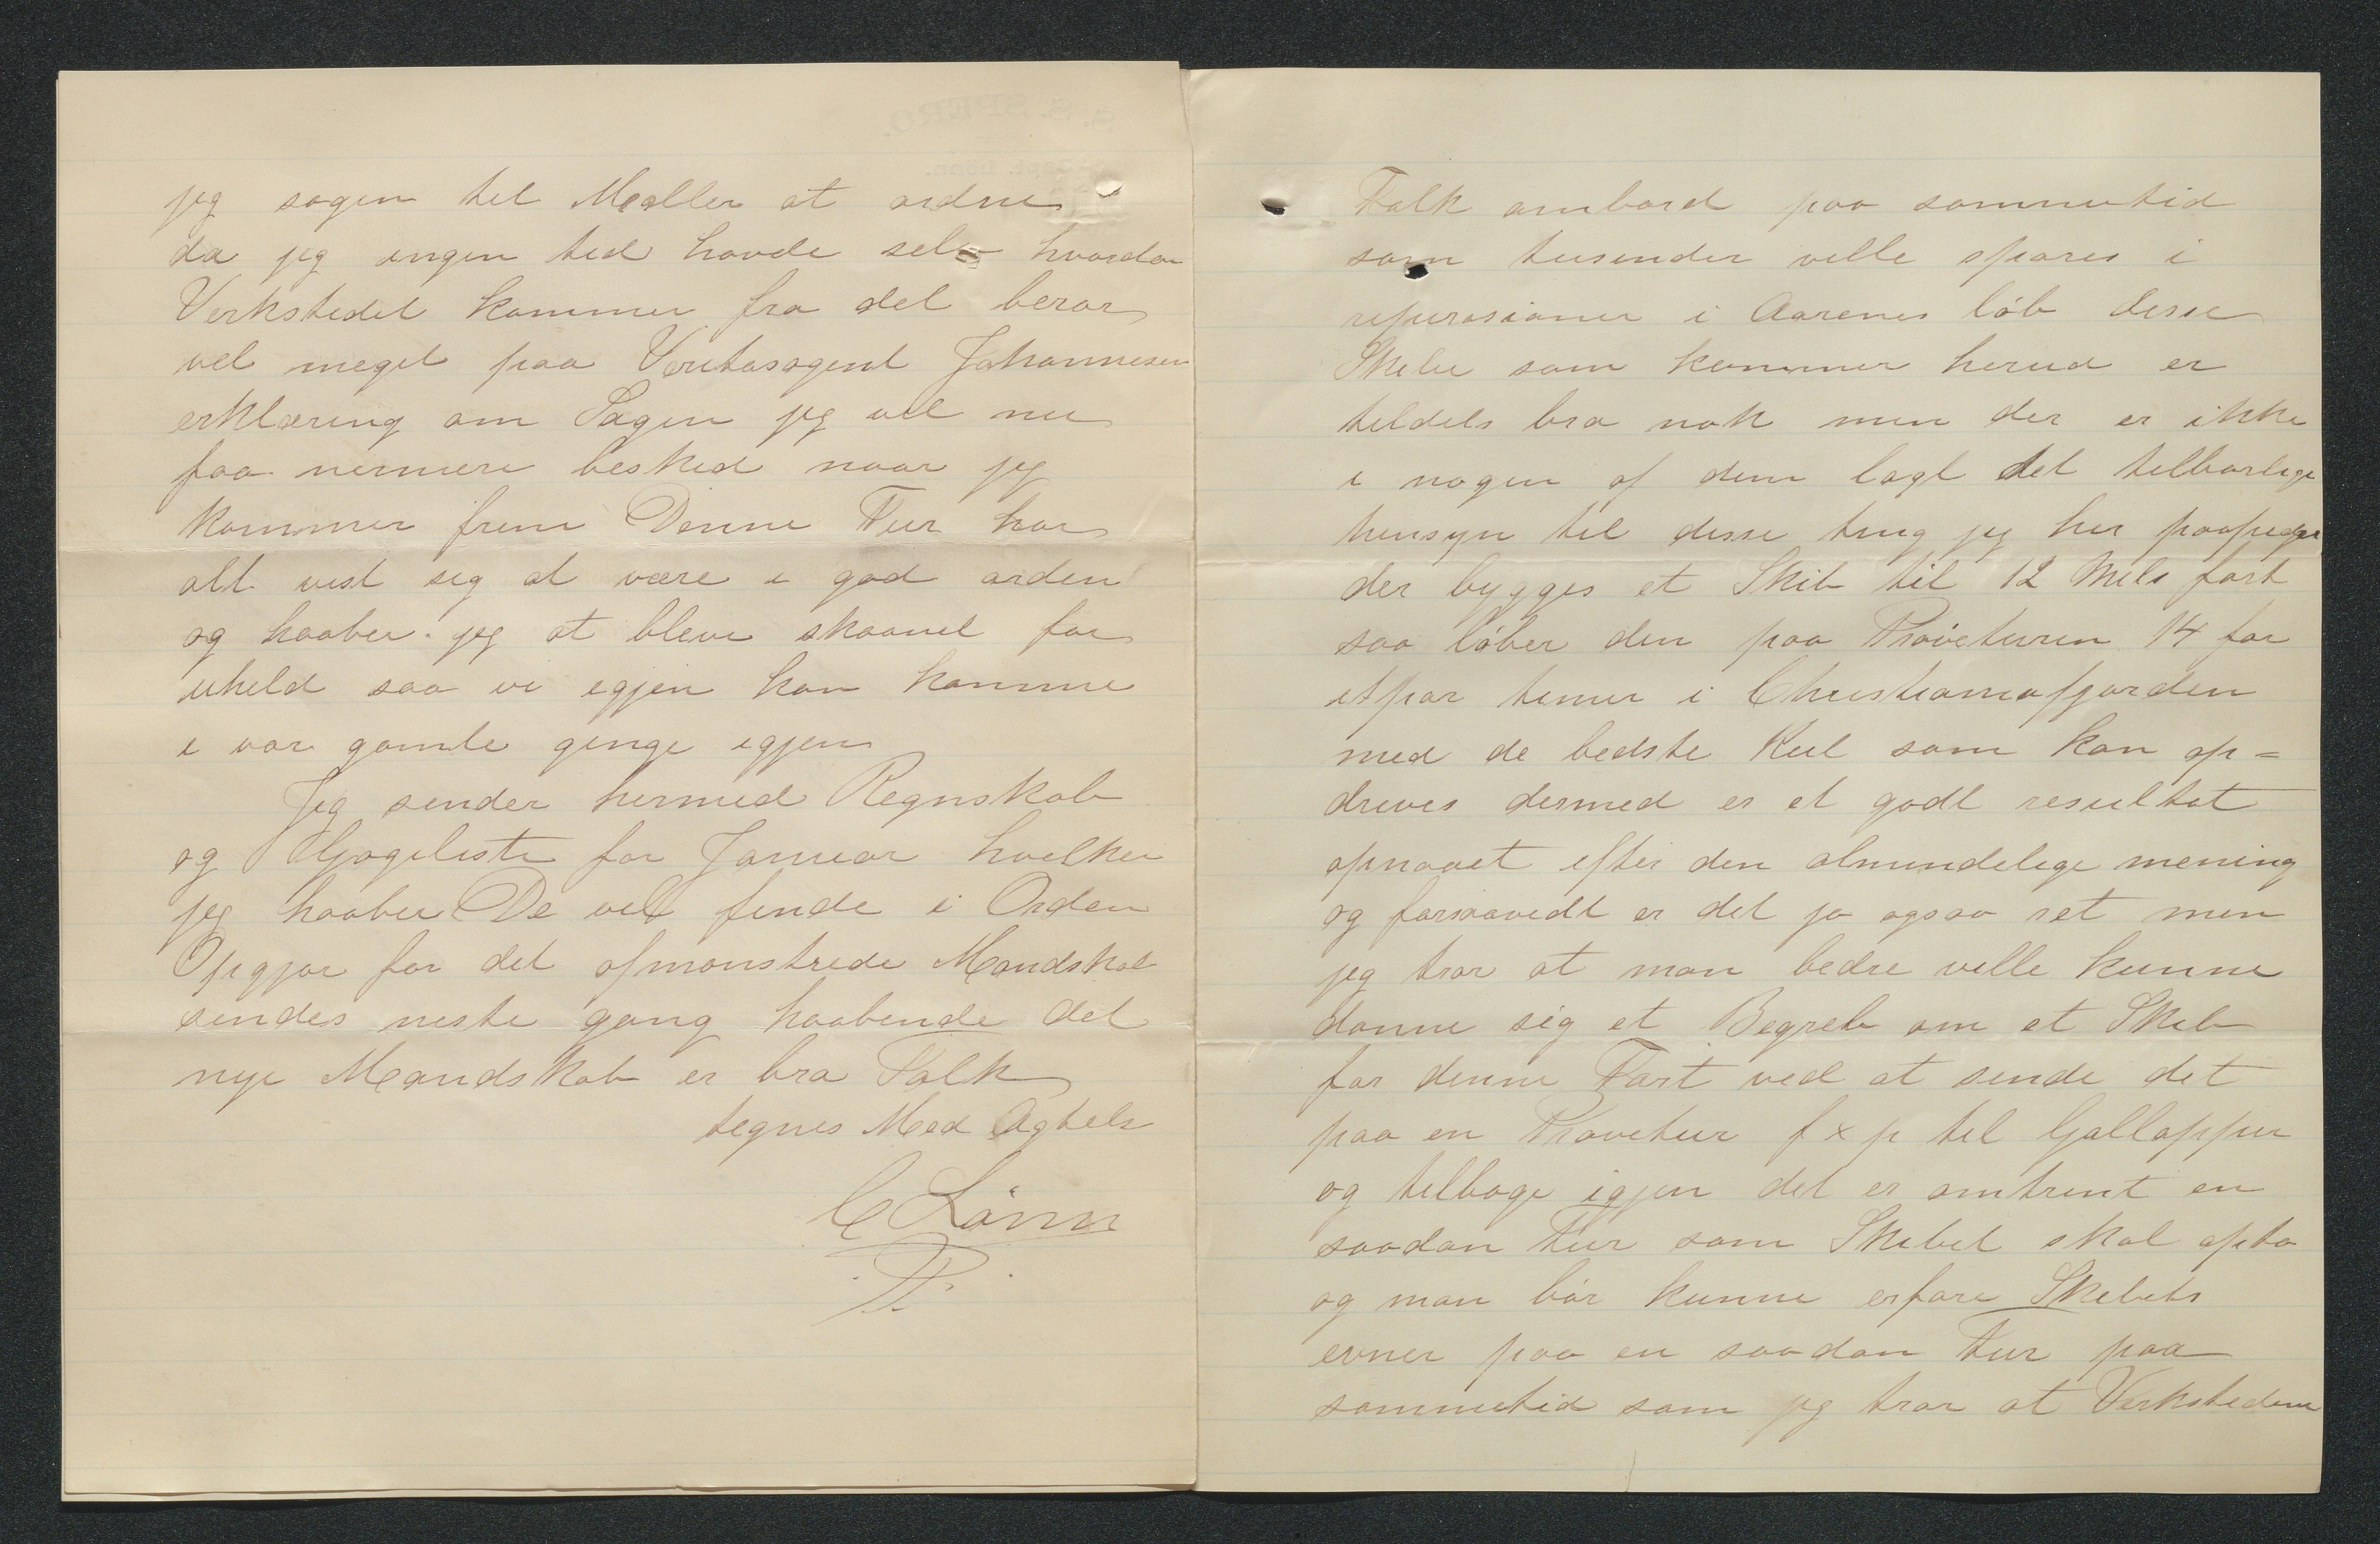 jeg sagen til Møller at ordne
da jeg ingen tid havde selv hvordan
Verkstedet kommer fra det beror
vel meget paa Veritasagent Johannesen
erklæring om Sagen jeg vil nu
faa nermere besked naar jeg
kommer frem Denne Tur har
alt vist sig at være i god orden
og haaber jeg at blive skaanet for
uheld saa vi igjen kan komme
i vor gamle genge igjen
Jeg sender hermed Regnskab
og Gageliste for Januar hvilket
jeg haaber De vil finde i Orden
Opgjør for det afmønstrede Mandskab
sendes neste gang haabende det
nye Mandskab er bra Folk
tegnes Med Agtels
C Lönn
Folk ombord paa sammetid
som tusinder ville spares i
reperasioner i Aarenes löb disse
Skibe som kommer herud er
tildels bra nok men der er ikke
i nogen af dem lagt det tilbørlige
hensyn til disse ting jeg her paapeger
der bygges et Skib til 12 Mils fart
saa löber den paa Pröveturen 14 for
etpar timer i Christianiafjorden
med de bedste Kul som kan op=
drives dermed er et godt resultat
opnaaet efter den almindelige mening
og forsaavidt er det jo ogsaa ret men
jeg tror at man bedre ville kunne
danne sig et Begreb om et Skib
for denne Fart ved at sende det
paa en Prøvetur f x p til Gallopper
og tilbage igjen det er omtrent en
saadan Tur som Skibet skal opta
og man bör kunne erfare Skibets
evner paa en saadan Tur paa
sammetid som jeg tror at Verkstederne